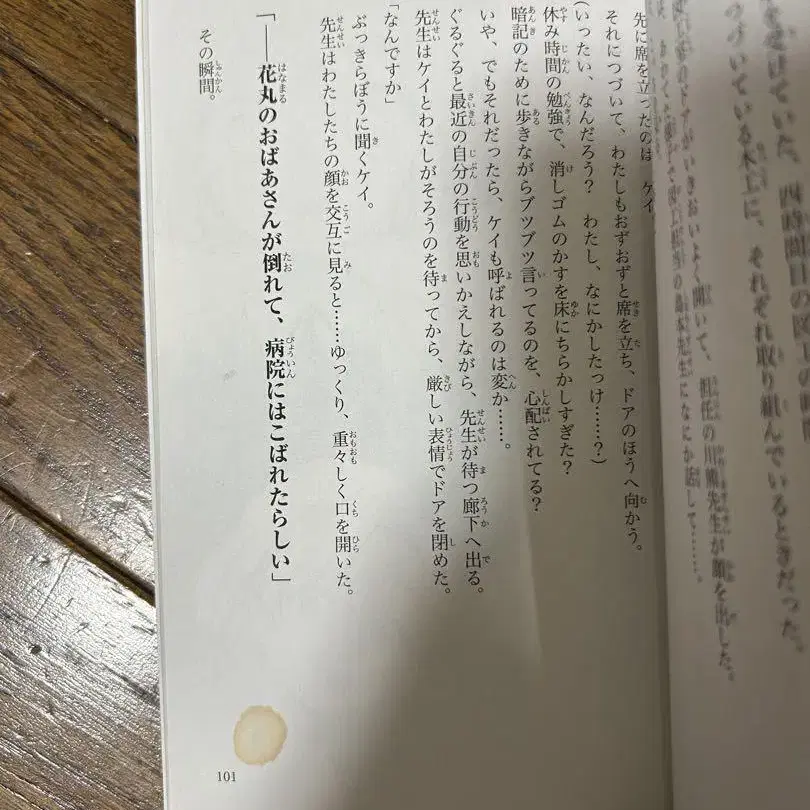 を受けていた、四時間目の
づいている木工に、それぞれ取り組んでいるときだった。
のドアがいきおいよく開いて、担任の川熊先生が顔を出した。
先生になにか話して……。
先に席を立ったのは ケイ
それにつづいて、わたしもおずおずと席を立ち、ドアのほうへ向かう。
(いったい、なんだろう? わたし、なにかしたっけ……?)
休み時間の勉強で、消しゴムのかすを床にちらかしすぎた?
暗記のために歩きながらブツブツ言ってるのを、心配されてる?
いや、でもそれだったら、ケイも呼ばれるのは変か……。
ぐるぐると最近の自分の行動を思いかえしながら、先生が待つ廊下へ出る。
先生はケイとわたしがそろうのを待ってから、厳しい表情でドアを閉めた。
「なんですか」
ぶっきらぼうに聞くケイ。
先生はわたしたちの顔を交互に見ると……ゆっくり、重々しく口を開いた。
「――花丸のおばあさんが倒れて、病院にはこばれたらしい」
その瞬間。
101